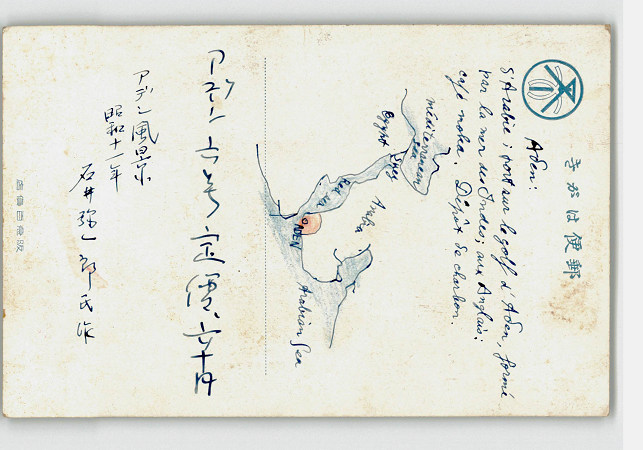 きがは便郵
Aden:
S'Arabie; port sur le golf d'Aden, formé
par la mer des Indes; aux Anglais:
café moka. Dépôt de charbon.
méditerranean
sea
Egypt
Suez
Red
sea
Arabia
ADEN
Arabian Sea
アデン六号定價六十円
アデン風景
昭和十一年
石井弥一郎氏作